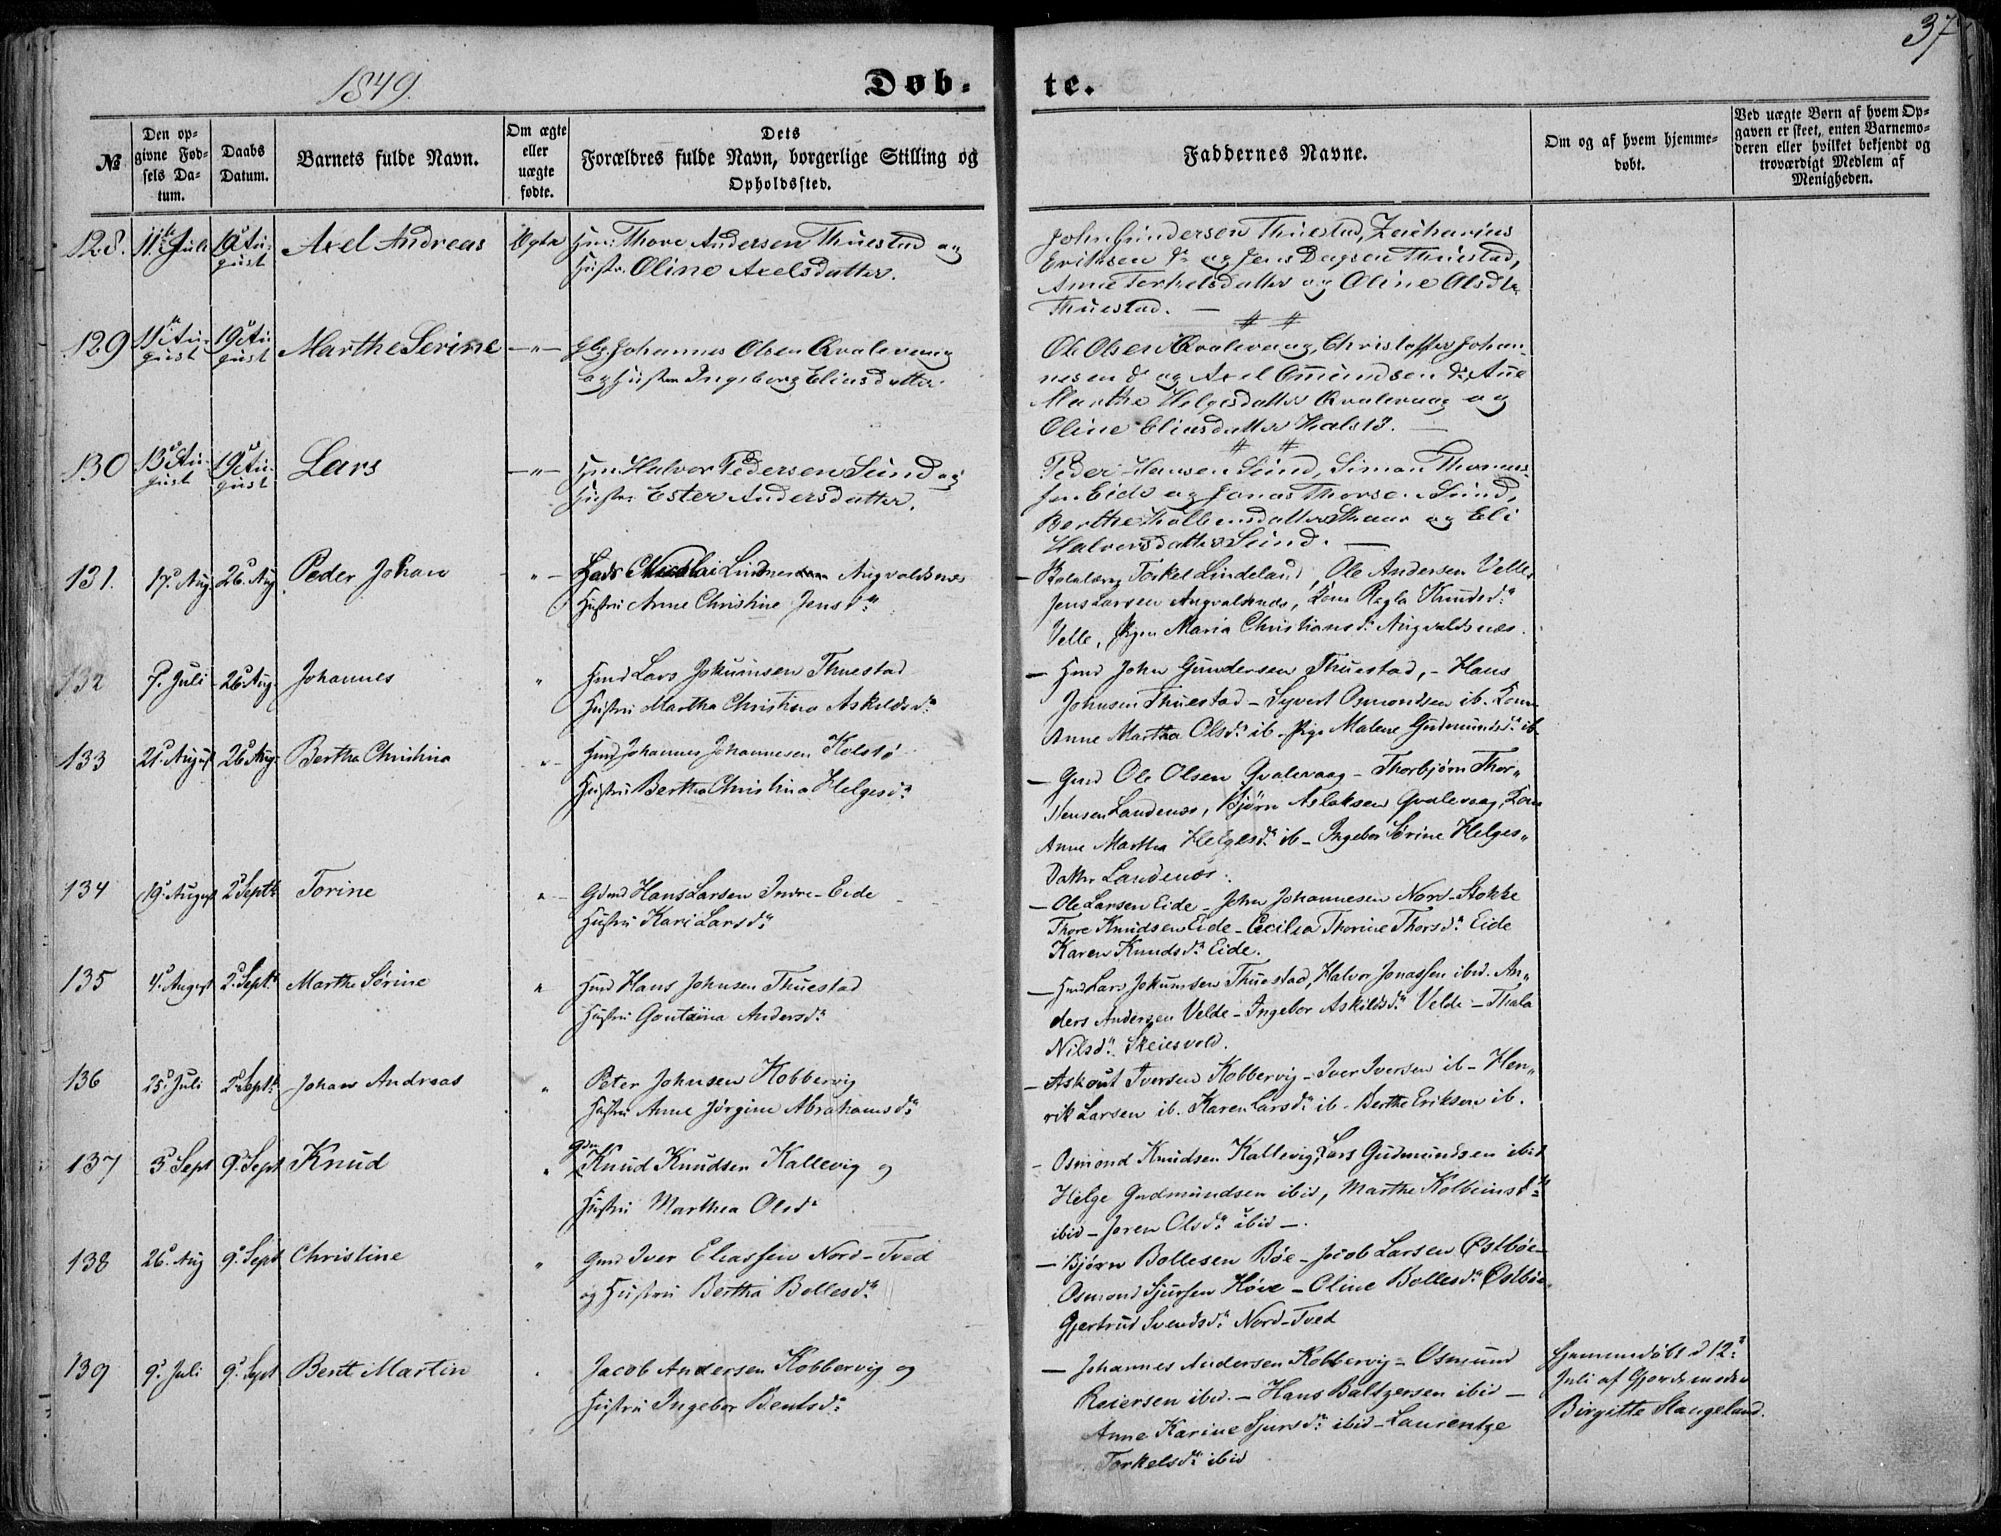 37
1849.
Døb- te.
№
Den op-
givne Fød-
sels Da-
tum.
Daabs
Datum.
Barnets fulde Navn.
Om ægte
eller
uægte
fødte.
Dets
Forældres fulde Navn, borgerlige Stilling og
Opholdssted.
Faddernes Navne.
Om og af hvem hjemme-
døbt.
Ved uægte Børn af hvem Op-
gaven er skeet, enten Barnemo-
deren eller hvilket bekjendt og
troværdigt Medlem af
Menigheden.
128. 11te Juli 19de Au-
gust Axel Andreas Ægte Hmd: Thore Andersen Thuestad og
Hustr: Oline Axelsdatter.
John Gundersen Thuestad, Zacharias
Eriksen do og Jens Dagsen Thuestad,
Anne Torkelsdatter og Oline Olsdtr
Thuestad. —
129 11te Au-
gust 19de Au-
gust Marthe Serine —"— Johannes Olsen Qvalevaag
og Hustru Ingeborg Eliasdatter.
Ole Olsen Qvalevaag, Christoffer Johan-
nesen do og Axel Omundsen do, Ane
Marthe Helgesdatter Qvalevaag og
Oline Eliasdatter Halstø. —
130 13de Au-
gust 19de Au-
gust Lars —"— Hmd Halvor Pedersen Sund og
Hustr: Ester Andersdatter.
Peder Hansen Sund, Simon Thomas-
sen Eide og Jonas Thorsen Sund,
Berthe Kolbensdatter Skaar og Eli
Halvorsdatter Sund. —
131. 17d Aug 26d Aug Peder Johan "– Nicolai Lindner Augvaldsnes
Hustru Anne Christine Jensdr
– Torkel Lindeland, Ole Andersen Velle
Jens Larsen Augvalsnæs, Kone Ragla Knudsdr
Velle, Pigen Maria Christiansdr Augvaldsnæs.
132 7. Juli 26d Aug. Johannes " Hmd Lars Jokumsen Thuestad
Hustru Martha Christina Askildsdr
– Hmd John Gundersen Thuestad, – Hans
Johnsen Thuestad – Syvert Osmondsen ib. Kone
Anne Martha Olsdr ib – Pige Malene Gudmundsdr ib.
133 21d August 26d Aug. Bertha Christina "– Hmd Johannes Johannesen Holstø
Hustru Bertha Christina Helgesdr
– Gmd Ole Olsen Qvalevaag – Thorbjørn Thor-
stensen Landenæs, Bjørn Aslaksen Qvalevaag, Kone
Anne Martha Helgesdr ib – Ingebor Sørine Helges-
Datter Landenæs.
134 19d August 2d Septb Torine " Gdmd Hans Larsen Indre-Eide
Hustru Kari Larsdr
– Ole Larsen Eide – John Johannesen Nord-Stokke
Thore Knudsen Eide – Cecilia Thorine Thorsdr Eide
Karen Knudsdr Eide.
135 4d August 2. Septb Marthe Sørine " Hmd Hans Johnsen Thuestad
Hustru Andersdr
– Hmd Lars Jokumsen Thuestad, Halvor Jonassen ibid. An-
ders Andersen Velde – Ingebor Askildsdr Velde – Thala
Nilsdr Skeiesvold.
136 25d Juli 2d Septb Johan Andreas " Peter Johnsen Kobbervig
Hustru Anne Jørgine Abrahamsdr
– Askout Iversen Kobbervig – Iver Iversen ib – Hen-
rik Larsen ib. Karen Larsdr ib – Berthe Eriksen ib.
137 3d Sept 9d Sept Knud " Gdm Knud Knudsen Kallevig og
Hustru Marthea Olsdr
– Osmond Knudsen Kallevig, Lars Gudmundsen ibid
Helge Gudmundsen ibid, Marthe Kolbeinsdr
ibid – Joren Olsdr ibid –.
138 26. Aug 9d Sept Christine " Gmd Iver Eliassen Nord-Tved
og Hustru Bertha Bollesdr
– Bjørn Bollesen Bøe – Jacob Larsen Østbøe
Osmond Sjursen Høie – Oline Bollesdr Østbøe
Gjertrud Svendsdr Nord-Tved
139 9d Juli 9d Sept Bent Martin . Jacob Andersen Kobbervig og
Hustru Ingebor Bentsdr
– Johannes Andersen Kobbervig – Osmund
Reiersen ibid. – Hans Baltzersen ibid –
Anne Karine Sjursdr ibid – Laurentze
Torkelsdr ibid
Hjemmedøbt d 12d
Juli af Gjordemoder
Birgitte Stangeland.